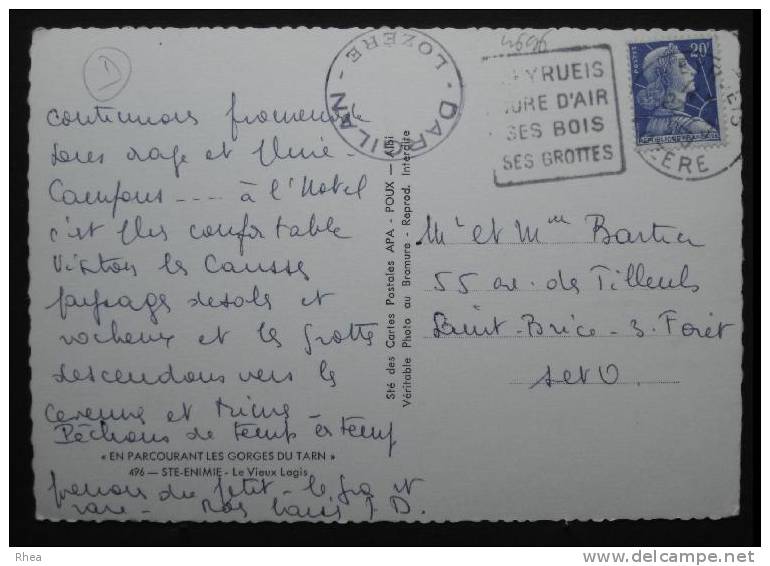 continuons promenade
sous orage et Pluie -
Campons ---- à l'Hotel
c'est plus confortable
Visitons les Causses
paysage desole et
rocheux et les grottes
descendons vers les
Cevennes et Nimes -
Pêchons de temps en temps
« EN PARCOURANT LES GORGES DU TARN »
496 — STE-ENIMIE - Le Vieux Logis
prenons du petit - le gros est
rare - Nos J. D.
D
DARGILAN
- LOZÈRE -
Sté des Cartes Postales APA - POUX - Albi
Véritable Photo au Bromure - Reprod. Interdite
YRUEIS
URE D'AIR
SES BOIS
SES GROTTES
POSTES
20F
REPUBLIQUE FRANÇAISE
ZERE
Mr et Mme Bartier
55 av. des Tilleuls
Saint-Brice-s. Forêt
S et O.
Rhea
www.delcampe.net